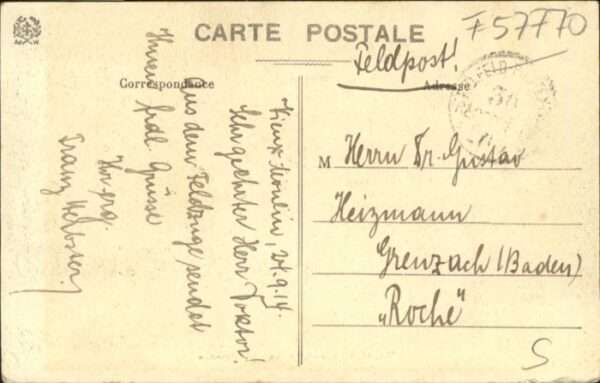 CARTE POSTALE
F 57770
Feldpost!
Correspondance
Adresse
Vieux Moulin, 24.9.14.
Sehr geehrter Herr Doktor!
Aus dem Feldzuge sendet
Ihnen frdl. Grüsse
Ihr erg.
Franz Herbster
M Herrn Dr. Gustav
Heizmann
Grenzach (Baden)
"Roche"
S